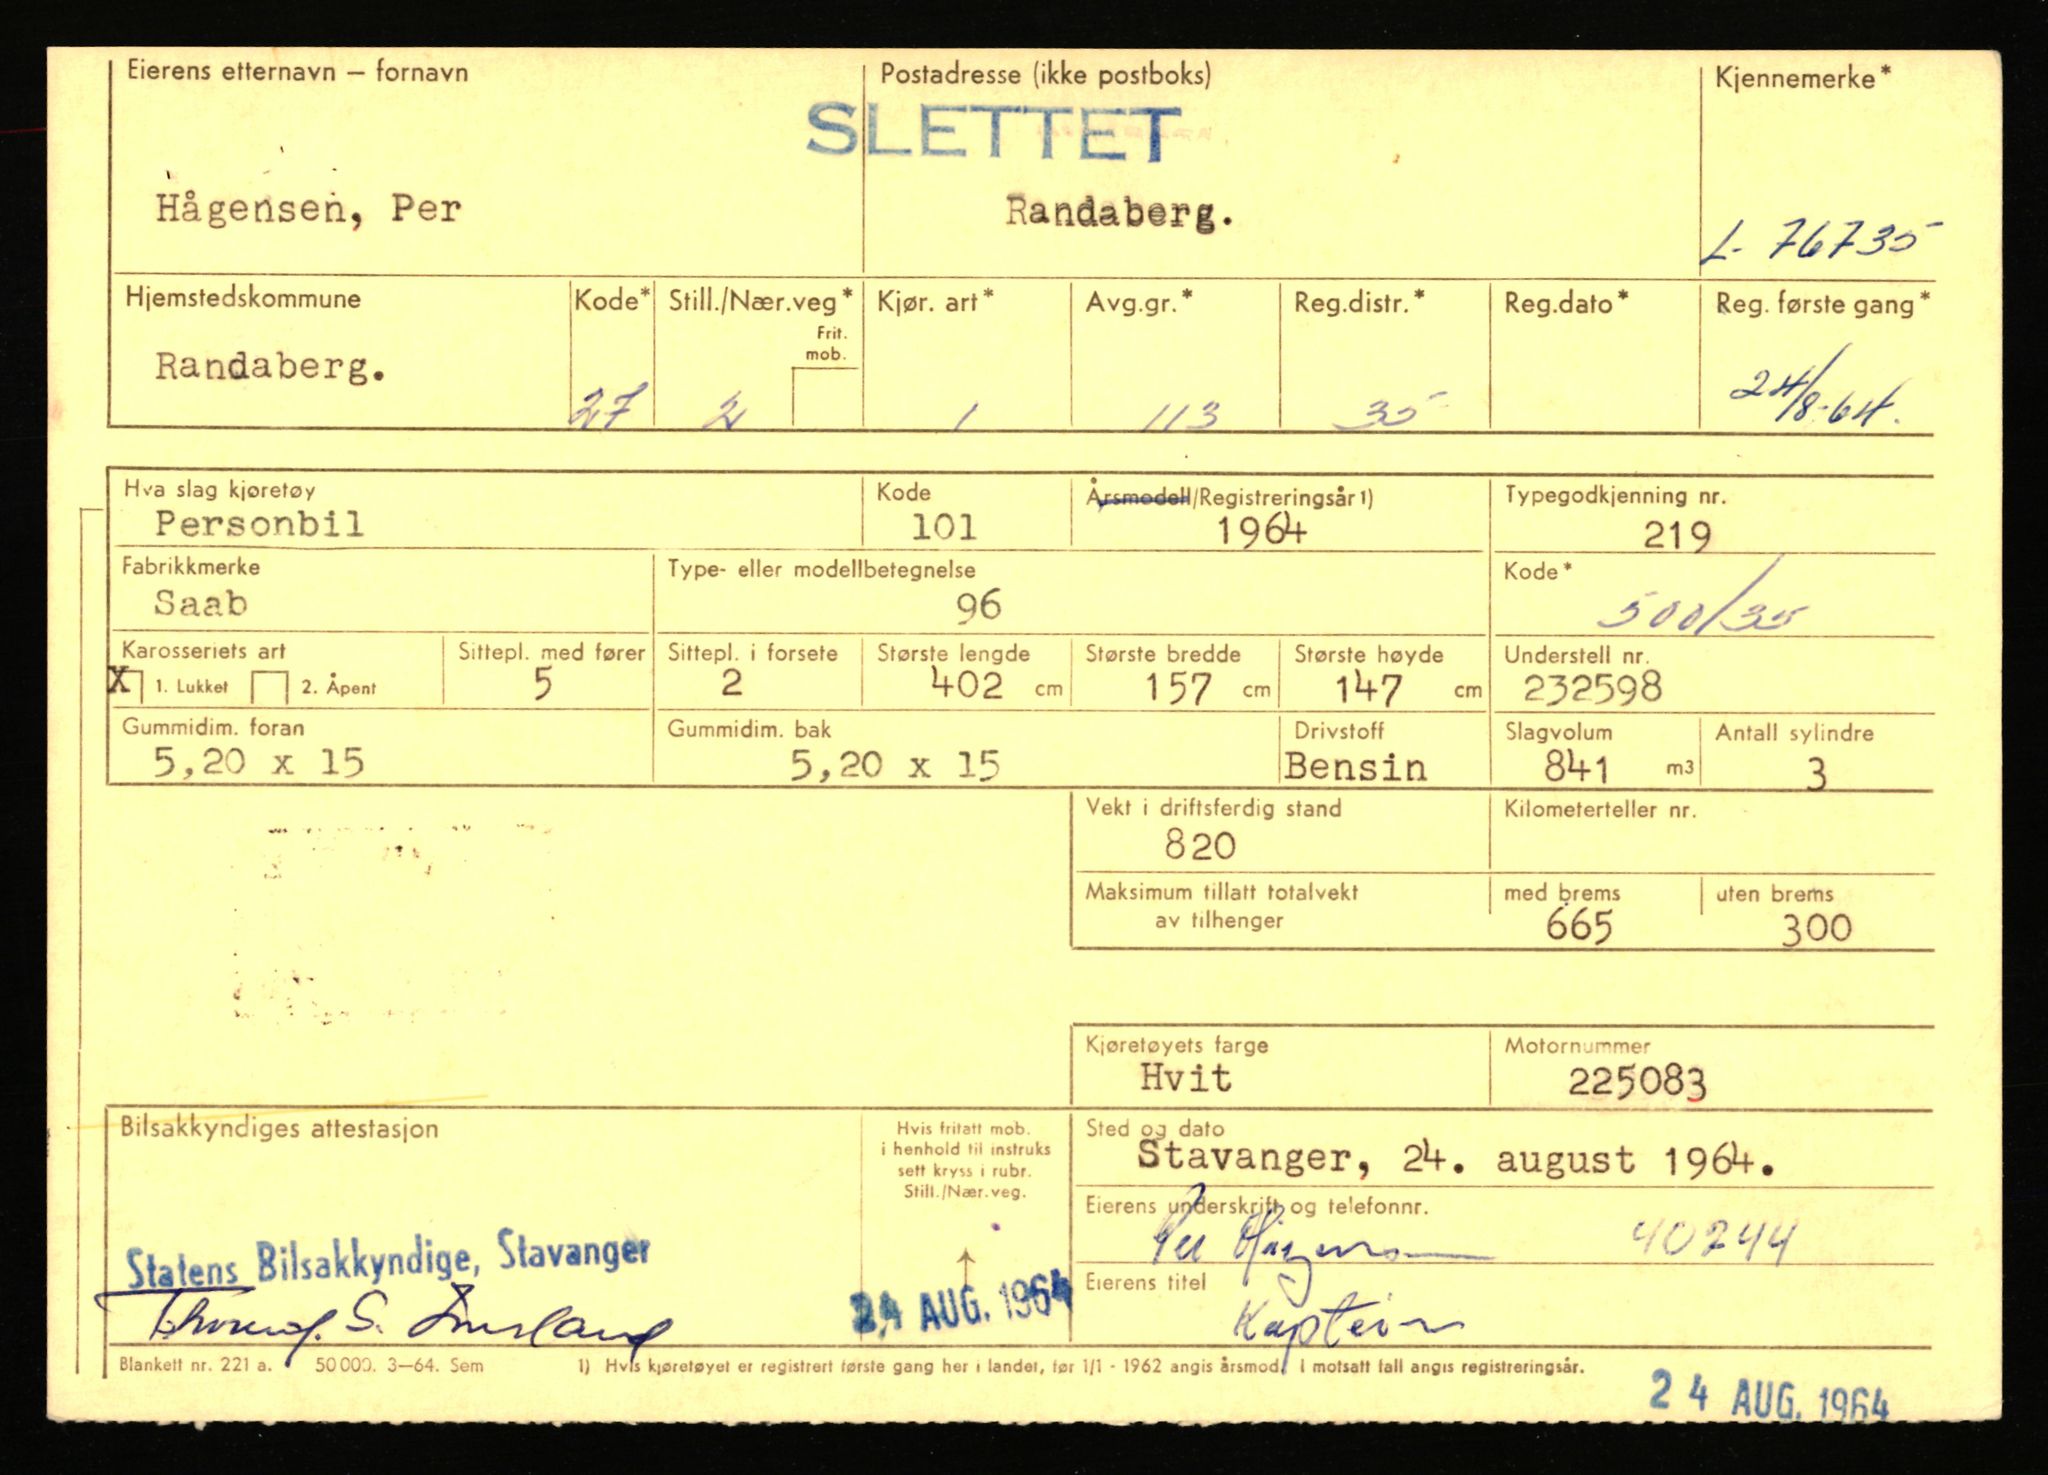 Eierens etternavn – fornavn
Postadresse (ikke postboks)
Kjennemerke*
SLETTET
Hågensen, Per
Randaberg.
L- 76735
Hjemstedskommune
Kode*
Still./Nær.veg*
Kjør. art*
Avg.gr.*
Reg.distr.*
Reg.dato*
Reg. første gang*
Frit.
mob.
Randaberg.
27
2
1
113
35
24/8-64.
Hva slag kjøretøy
Kode
Årsmodell/Registreringsår 1)
Typegodkjenning nr.
Personbil
101
1964
219
Fabrikkmerke
Type- eller modellbetegnelse
Kode*
Saab
96
500/35
Karosseriets art
Sittepl. med fører
Sittepl. i forsete
Største lengde
Største bredde
Største høyde
Understell nr.
X 1. Lukket
2. Åpent
5
2
402 cm
157 cm
147 cm
232598
Gummidim. foran
Gummidim. bak
Drivstoff
Slagvolum
Antall sylindre
5,20 x 15
5,20 x 15
Bensin
841 m3
3
Vekt i driftsferdig stand
Kilometerteller nr.
820
Maksimum tillatt totalvekt
av tilhenger
med brems
uten brems
665
300
Kjøretøyets farge
Motornummer
Hvit
225083
Bilsakkyndiges attestasjon
Hvis fritatt mob.
i henhold til instruks
sett kryss i rubr.
Still./Nær.veg.
Sted og dato
Stavanger, 24. august 1964.
Eierens underskrift og telefonnr.
Per Hågensen
40244
Statens Bilsakkyndige, Stavanger
Eierens titel
24 AUG. 1964
Kaptein
S.
Blankett nr. 221 a.
50 000. 3–64. Sem
1) Hvis kjøretøyet er registrert første gang her i landet, før 1/1 - 1962 angis årsmod. I motsatt fall angis registreringsår.
24 AUG. 1964